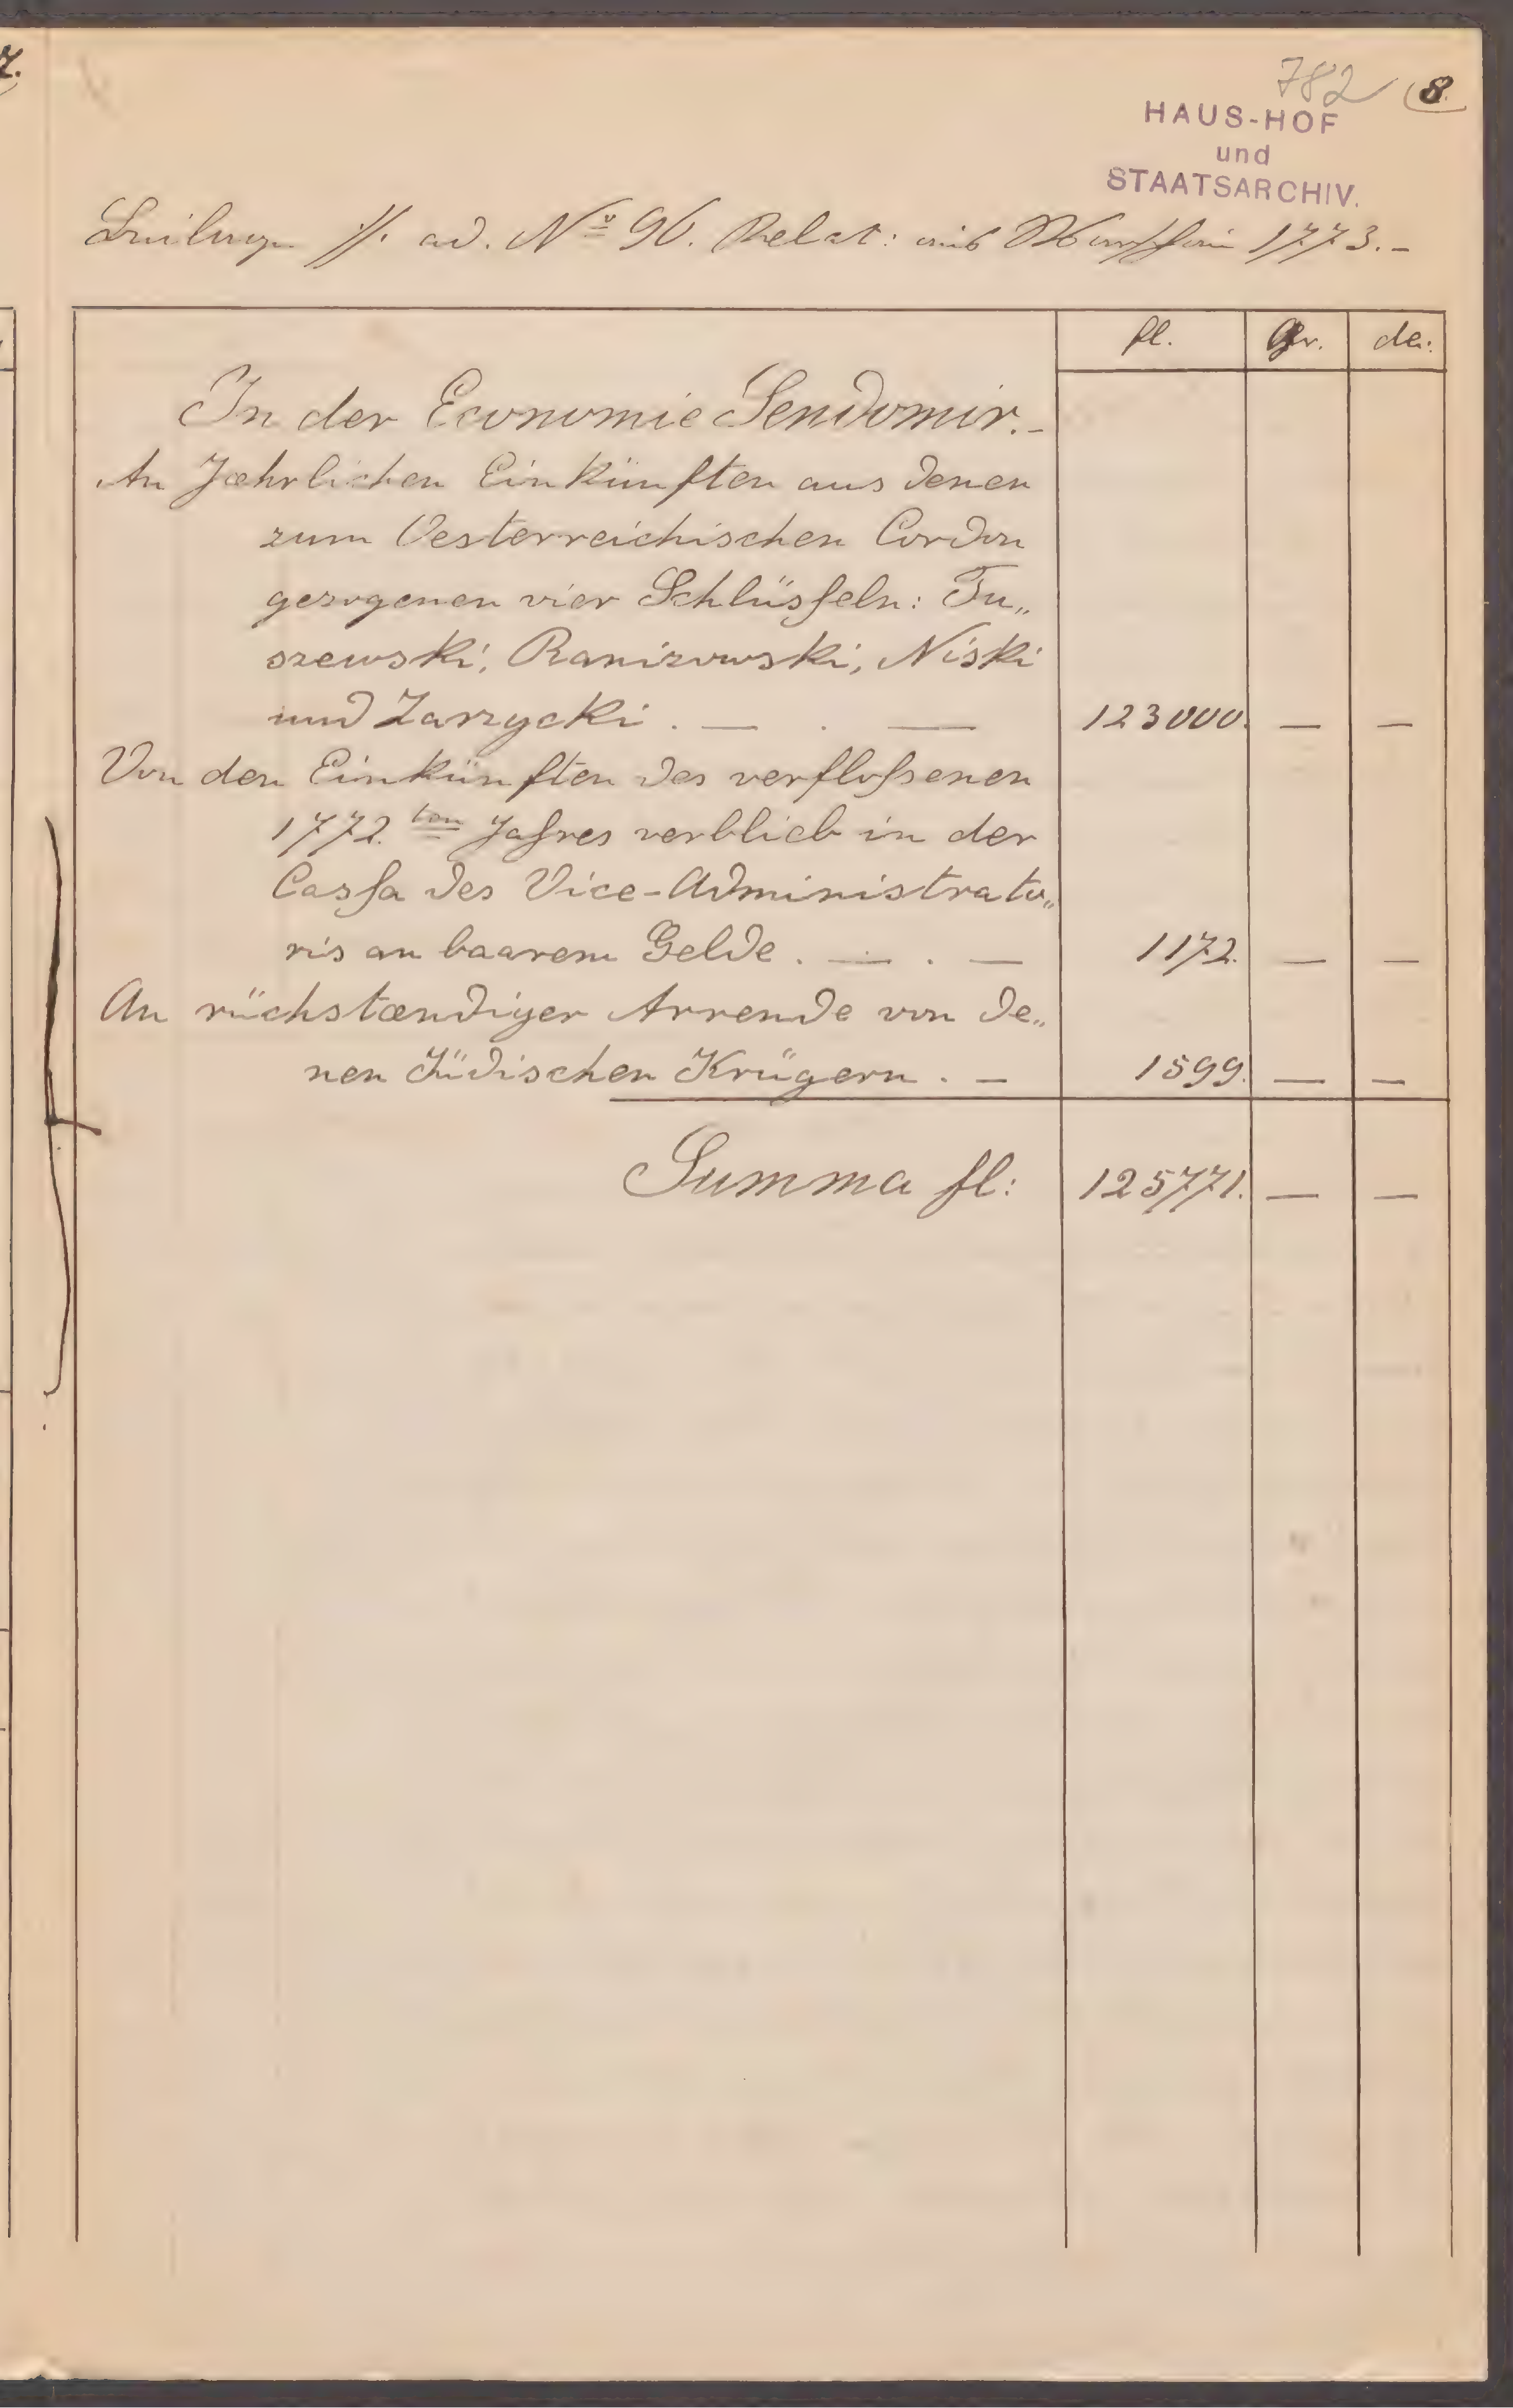 7.
782
8.
HAUS-HOF
und
STAATSARCHIV.
Beilage //. ad. Nº 96. Relat: aus Warschau 1773.-
fl. gr. de:
In der Economie Sendomir.-
An Jæhrlichen Einkünften aus denen
zum Oesterreichischen Cordon
gezogenen vier Schlüsseln: Tu„
szewski, Ranizowski, Niski
und Zarzycki . — . — 123000. — —
Von den Einkünften des verfloßenen
1772.ten Jahres verblieb in der
Cassa des Vice-Administrato„
ris an baarem Gelde . — . — 1172. — —
An rückstændiger Arrende von de„
nen Jüdischen Krügern . — 1599. — —
Summa fl: 125771. — —